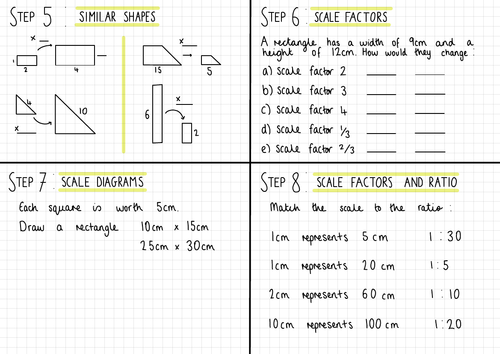 STEP 5 : SIMILAR SHAPES
x __
1
2
4
__
x __
15
5
4
10
x __
x __
6
2
STEP 6 : SCALE FACTORS
A rectangle has a width of 9cm and a
height of 12cm. How would they change :
a) Scale factor 2 ____ ____
b) Scale factor 3 ____ ____
c) Scale factor 4 ____ ____
d) Scale factor 1/3 ____ ____
e) Scale factor 2/3 ____ ____
STEP 7 : SCALE DIAGRAMS
Each square is worth 5cm.
Draw a rectangle 10cm x 15cm
25cm x 30cm
STEP 8 : SCALE FACTORS AND RATIO
Match the scale to the ratio :
1cm represents 5cm 1 : 30
1cm represents 20cm 1 : 5
2cm represents 60cm 1 : 10
10cm represents 100cm 1 : 20